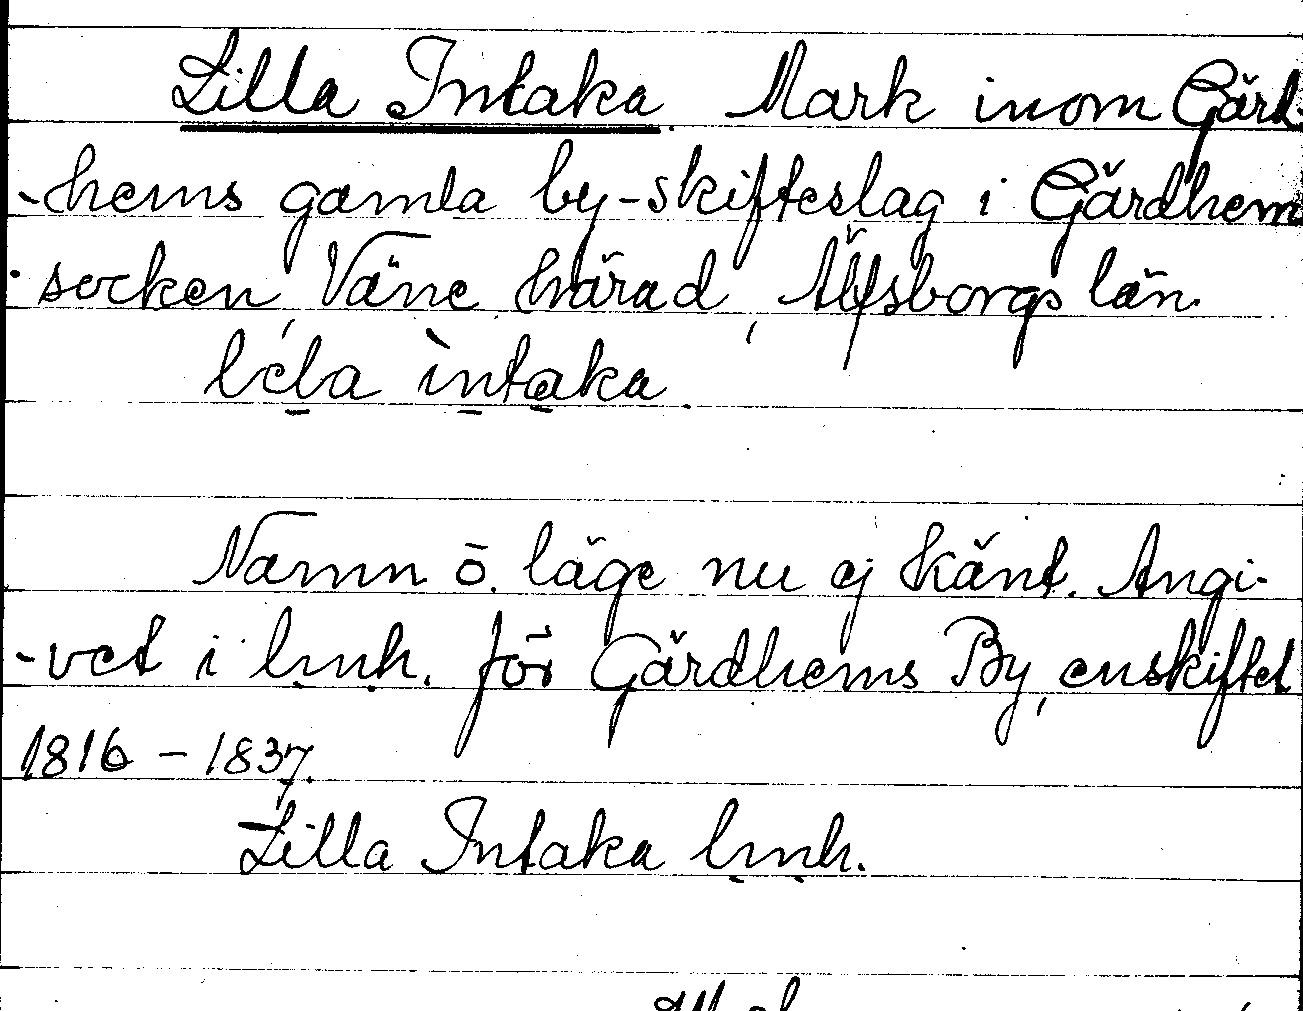 Lilla Intaka. Mark inom Gärd-
-hems gamla by-skifteslag i Gärdhem
socken, Väne härad, Älfsborgs län.
lela ìntaka.
Namn o. läge nu ej känt. Angi-
-vet i lmh. för Gärdhems By, enskiftet
1816 - 1837.
Lilla Intaka lmh.